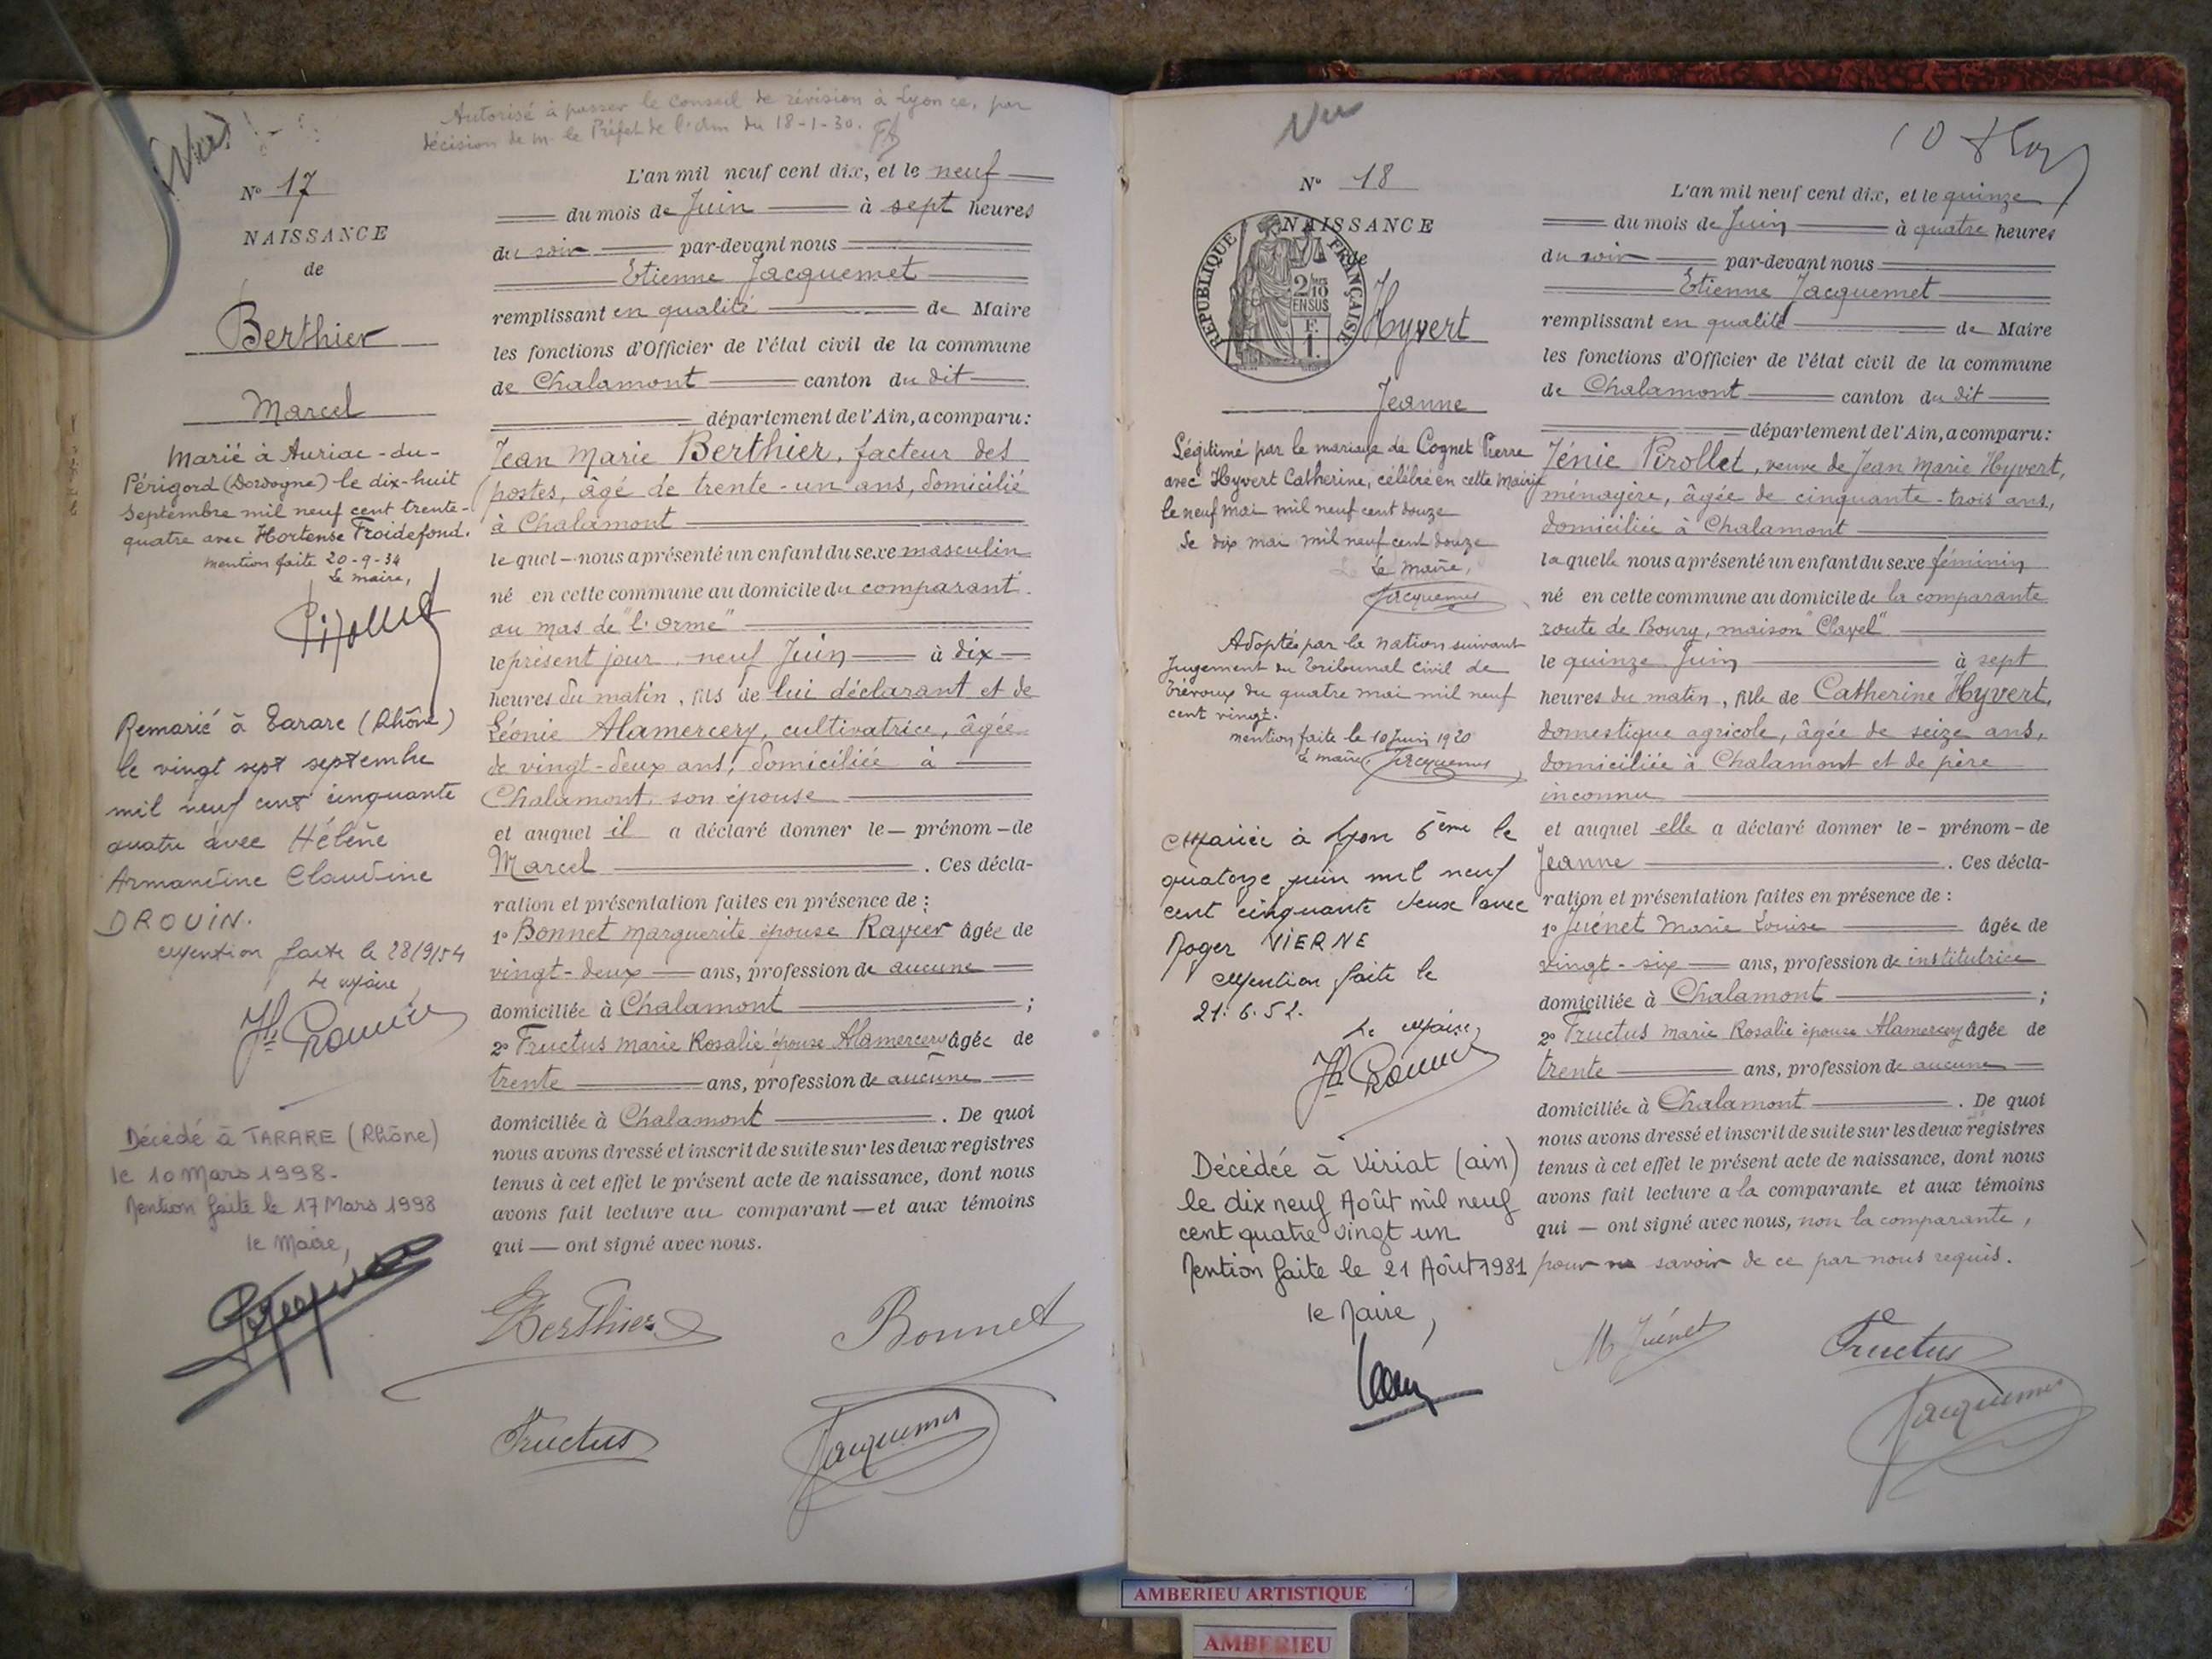 Vu
Autorisé à passer le Conseil de révision à Lyon ce, par
décision de m. le Préfet de l'Ain du 18-1-30.
N° 17
NAISSANCE
de
Berthier
Marcel
Marié à Auriac-du-
Périgord (Dordogne) le dix-huit
septembre mil neuf cent trente-
quatre avec Hortense Froidefond.
mention faite 20-9-34
Le maire,
Remarié à Tarare (Rhône)
le vingt sept septembre
mil neuf cent cinquante
quatre avec Hélène
Armandine Claudine
DROUIN.
Mention faite le 28/9/54
Le Maire
Décédé à TARARE (Rhône)
le 10 Mars 1998-
Mention faite le 17 Mars 1998
le Maire,
L'an mil neuf cent dix, et le neuf
du mois de Juin à sept heures
du soir par-devant nous
Etienne Jacquemet
remplissant en qualité de Maire
les fonctions d'Officier de l'état civil de la commune
de Chalamont canton du dit
département de l'Ain, a comparu:
Jean Marie Berthier, facteur des
postes, âgé de trente-un ans, domicilié
à Chalamont
le quel - nous a présenté un enfant du sexe masculin
né en cette commune au domicile du comparant.
au mas de "l'Orme"
le présent jour, neuf Juin à dix
heures du matin, fils de lui déclarant et de
Léonie Alamercery, cultivatrice, âgée
de vingt-deux ans, domiciliée à
Chalamont, son épouse
et auquel il a déclaré donner le - prénom - de
Marcel . Ces décla-
ration et présentation faites en présence de :
1° Bonnet Marguerite épouse Ravier âgée de
vingt-deux ans, profession de aucune
domiciliée à Chalamont ;
2° Fructus Marie Rosalie épouse Alamercery âgée de
trente ans, profession de aucune
domiciliée à Chalamont . De quoi
nous avons dressé et inscrit de suite sur les deux registres
tenus à cet effet le présent acte de naissance, dont nous
avons fait lecture au comparant - et aux témoins
qui - ont signé avec nous.
Berthier
Bonnet
Fructus
Jacquemet
Vu
N° 18
NAISSANCE
de
RÉPUBLIQUE FRANÇAISE
2/10
EN SUS
Hyvert
Jeanne
Légitimé par le mariage de Cognet Pierre
avec Hyvert Catherine, célébré en cette Mairie
le neuf mai mil neuf cent douze
Le dix mai mil neuf cent douze
Le maire,
Jacquemet
Adoptée par la nation suivant
Jugement du Tribunal Civil de
Trévoux du quatre mai mil neuf
cent vingt.
mention faite le 10 Juin 1920
Le maire, Jacquemet
Mariée à Lyon 6ème le
quatorze juin mil neuf
cent cinquante deux avec
Roger VIERNE
Mention faite le
21.6.52.
Le Maire,
Décédée à Viriat (ain)
le dix neuf Août mil neuf
cent quatre vingt un
Mention faite le 21 Août 1981
le Maire,
L'an mil neuf cent dix, et le quinze
du mois de Juin à quatre heures
du soir par-devant nous
Etienne Jacquemet
remplissant en qualité de Maire
les fonctions d'Officier de l'état civil de la commune
de Chalamont canton du dit
département de l'Ain, a comparu:
Jénie Pirollet, veuve de Jean Marie Hyvert,
ménagère, âgée de cinquante-trois ans,
domiciliée à Chalamont
la quelle nous a présenté un enfant du sexe féminin
né en cette commune au domicile de la comparante
route de Bourg, maison "Clavel"
le quinze Juin à sept
heures du matin, fille de Catherine Hyvert,
domestique agricole, âgée de seize ans,
domiciliée à Chalamont et de père
inconnu
et auquel elle a déclaré donner le - prénom - de
Jeanne . Ces décla-
ration et présentation faites en présence de :
1° Juénet Marie Louise âgée de
vingt-six ans, profession de institutrice
domiciliée à Chalamont ;
2° Fructus Marie Rosalie épouse Alamercery âgée de
trente ans, profession de aucune
domiciliée à Chalamont . De quoi
nous avons dressé et inscrit de suite sur les deux registres
tenus à cet effet le présent acte de naissance, dont nous
avons fait lecture a la comparante et aux témoins
qui - ont signé avec nous, non la comparante,
pour ne savoir de ce par nous requis.
M Juénet
Fructus
Jacquemet
AMBERIEU ARTISTIQUE
AMBERIEU